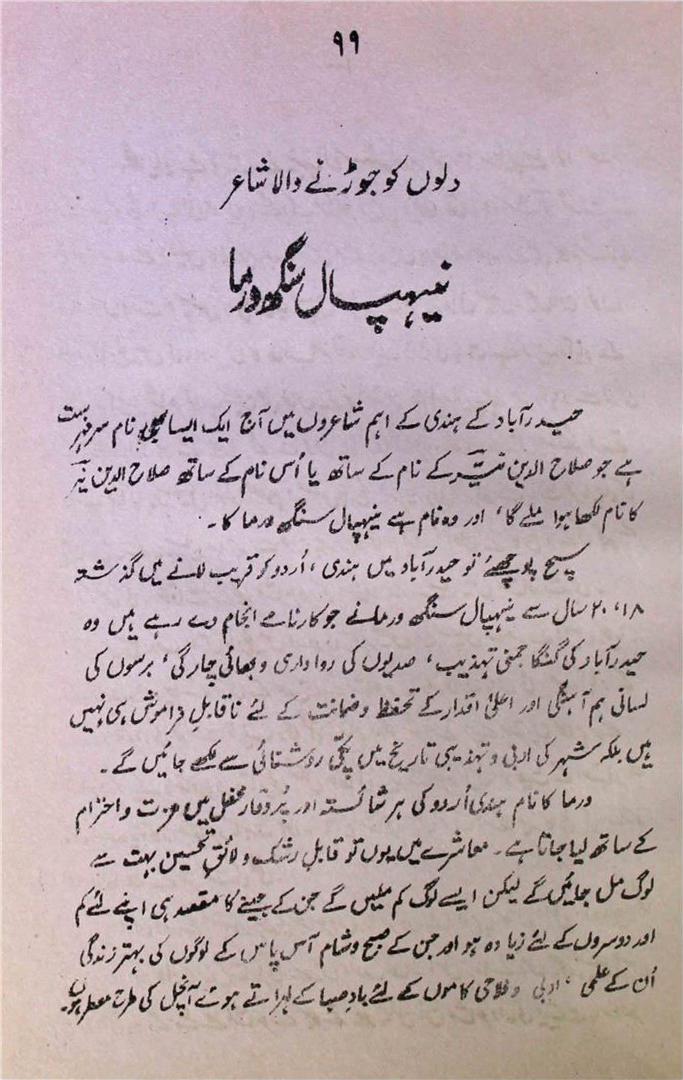 ۹۹
دلوں کو جوڑنے والا شاعر
نیہپال سنگھ ورما
حیدرآباد کے ہندی کے اہم شاعروں میں آج ایک ایسا بھی نام سرفہرست
ہے جو صلاح الدین نیّر کے نام کے ساتھ یا اُس نام کے ساتھ صلاح الدین نیّر
کا نام لکھا ہوا ملے گا، اور وہ نام ہے نیہپال سنگھ ورما کا۔
سچ پوچھئے تو حیدرآباد میں ہندی، اُردو کو قریب لانے میں گذشتہ
۱۸، ۲۰ سال سے نیہپال سنگھ ورما نے جو کارنامے انجام دے رہے ہیں وہ
حیدرآباد کی گنگا جمنی تہذیب، صدیوں کی رواداری و بھائی چارگی، برسوں کی
لسانی ہم آہنگی اور اعلیٰ اقدار کے تحفظ و ضمانت کے لئے ناقابلِ فراموش ہی نہیں
ہیں بلکہ شہر کی ادبی و تہذیبی تاریخ میں پکّی روشنائی سے لکھے جائیں گے۔
ورما کا نام ہندی اُردو کی ہر شائستہ اور پُروقار محفل میں عزت و احترام
کے ساتھ لیا جاتا ہے۔ معاشرے میں یوں تو قابلِ رشک و لائقِ تحسین بہت سے
لوگ مل جائیں گے لیکن ایسے لوگ کم ملیں گے جن کے جینے کا مقصد ہی اپنے لئے کم
اور دوسروں کے لئے زیادہ ہو اور جن کے صبح و شام آس پاس کے لوگوں کی بہتر زندگی
اُن کے علمی، ادبی و فلاحی کاموں کے لئے بادِ صبا کے لہراتے ہوئے آنچل کی طرح معطر ہوں۔